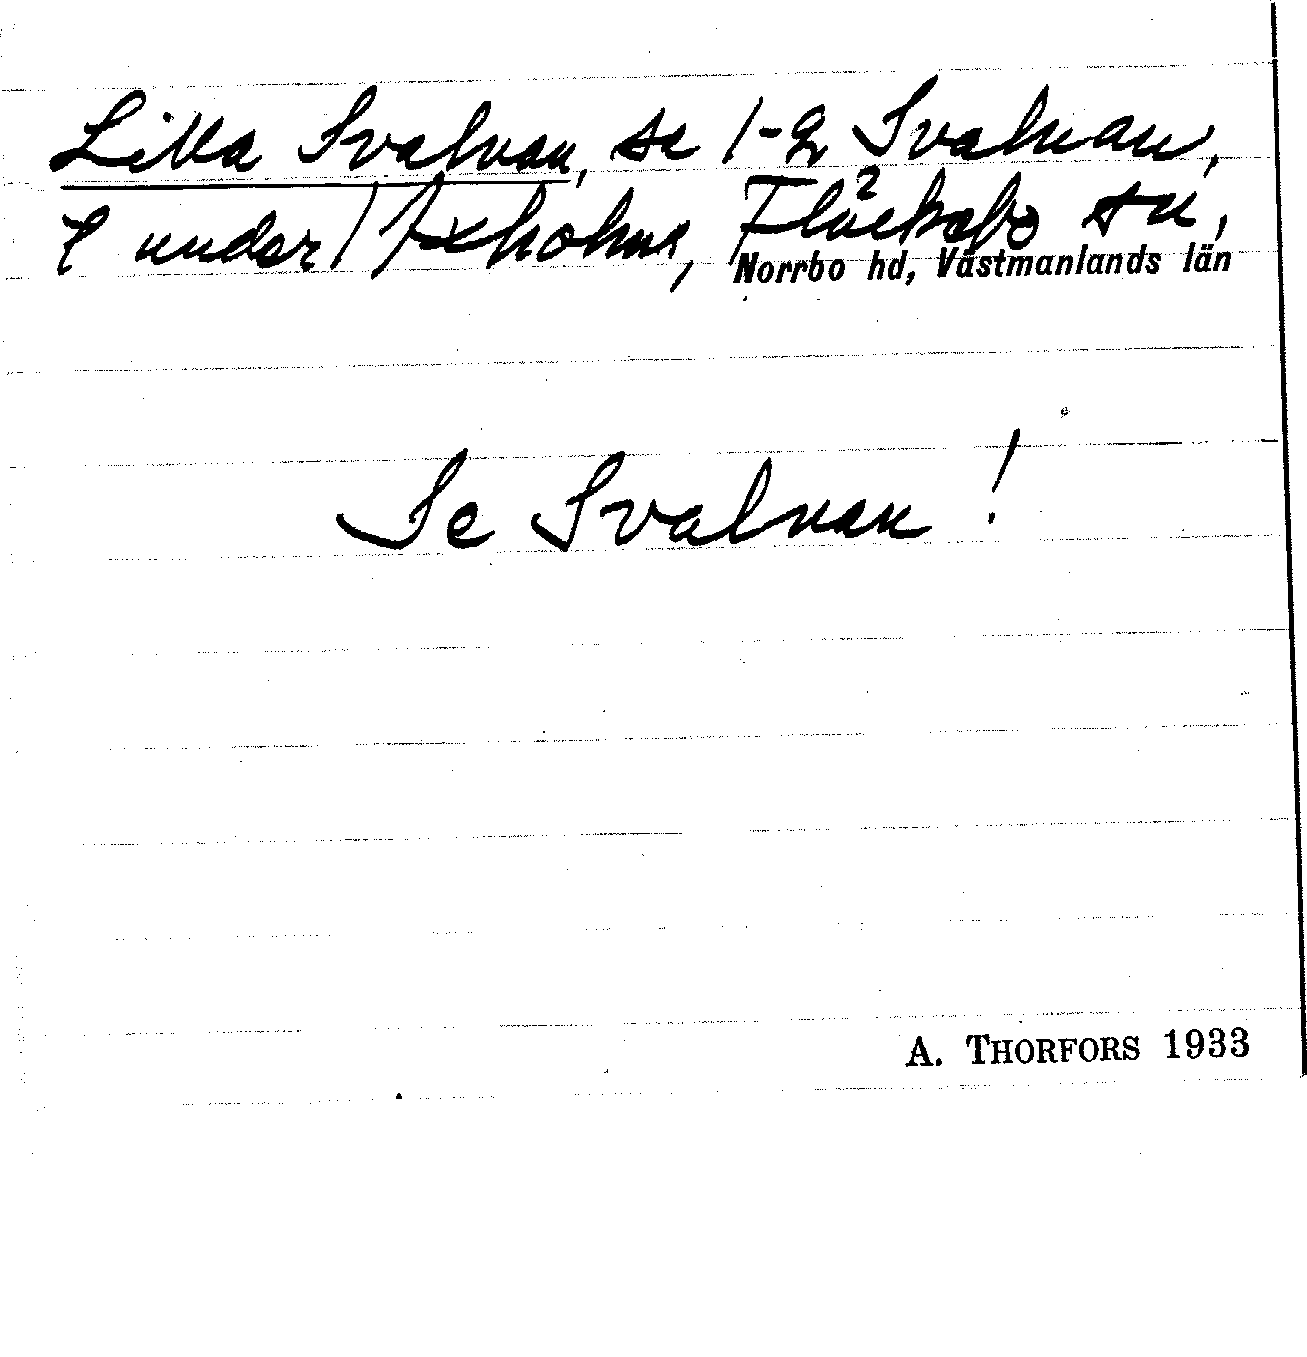 Lilla Svalvan, se 1-2 Svalvan,
t under Axholme, Fläckebo sn,
Norrbo hd, Västmanlands län
Se Svalvan!
A. THORFORS 1933